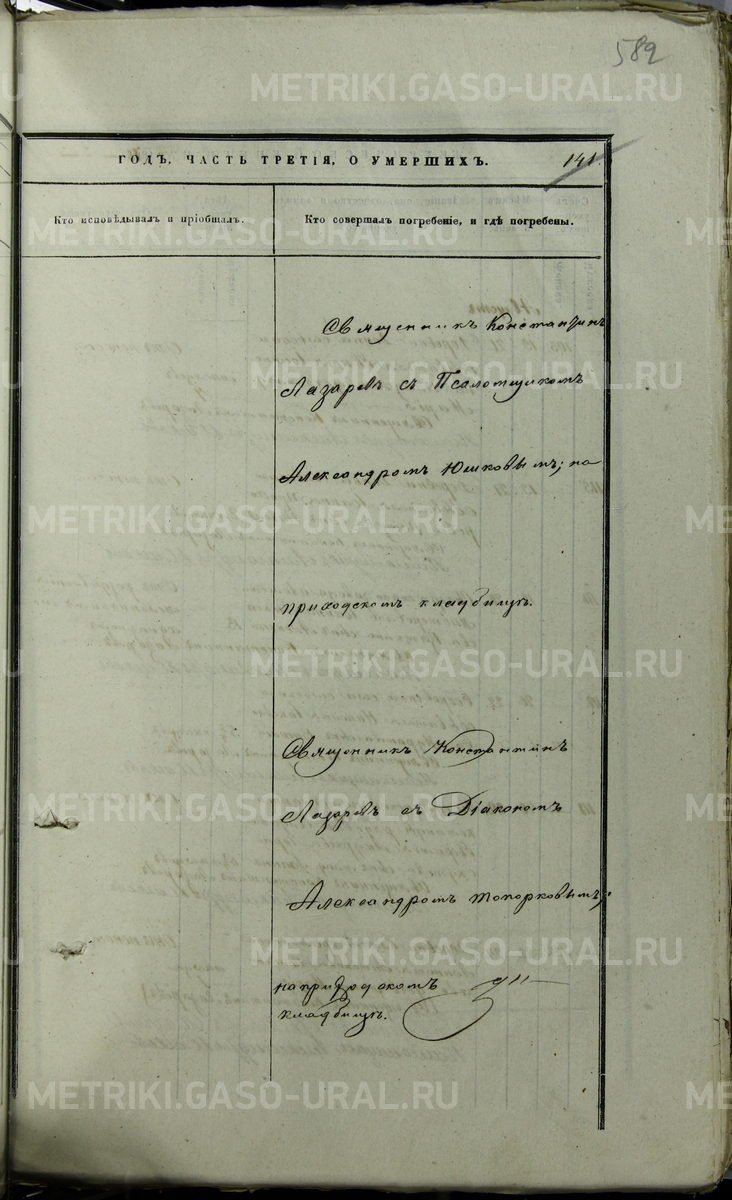 582
METRIKI.GASO-URAL.RU
ГОДЪ. ЧАСТЬ ТРЕТІЯ, О УМЕРШИХЪ.
141.
Кто исповѣдывалъ и пріобщалъ.
Кто совершалъ погребеніе, и гдѣ погребены.
Священникъ Константинъ
Лазаревъ съ Псаломщикомъ
Александромъ Юшковымъ; на
приходскомъ кладбищѣ.
Священникъ Константинъ
Лазаревъ съ Діакономъ
Александромъ Топорковымъ;
на приходскомъ
кладбищѣ.